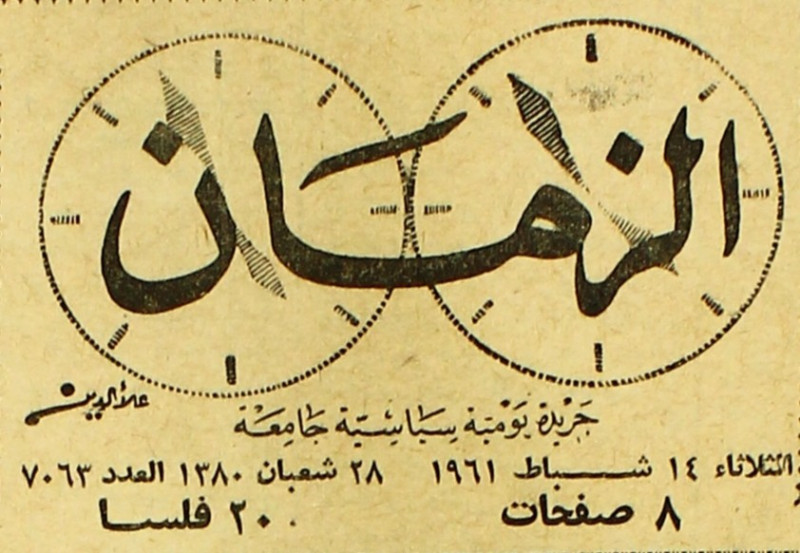 الزمان
جريدة يومية سياسية جامعة
علاءالدين
الثلاثاء ١٤ شباط ١٩٦١ ٢٨ شعبان ١٣٨٠ العدد ٧٠٦٣
٨ صفحات ٢٠ فلسا